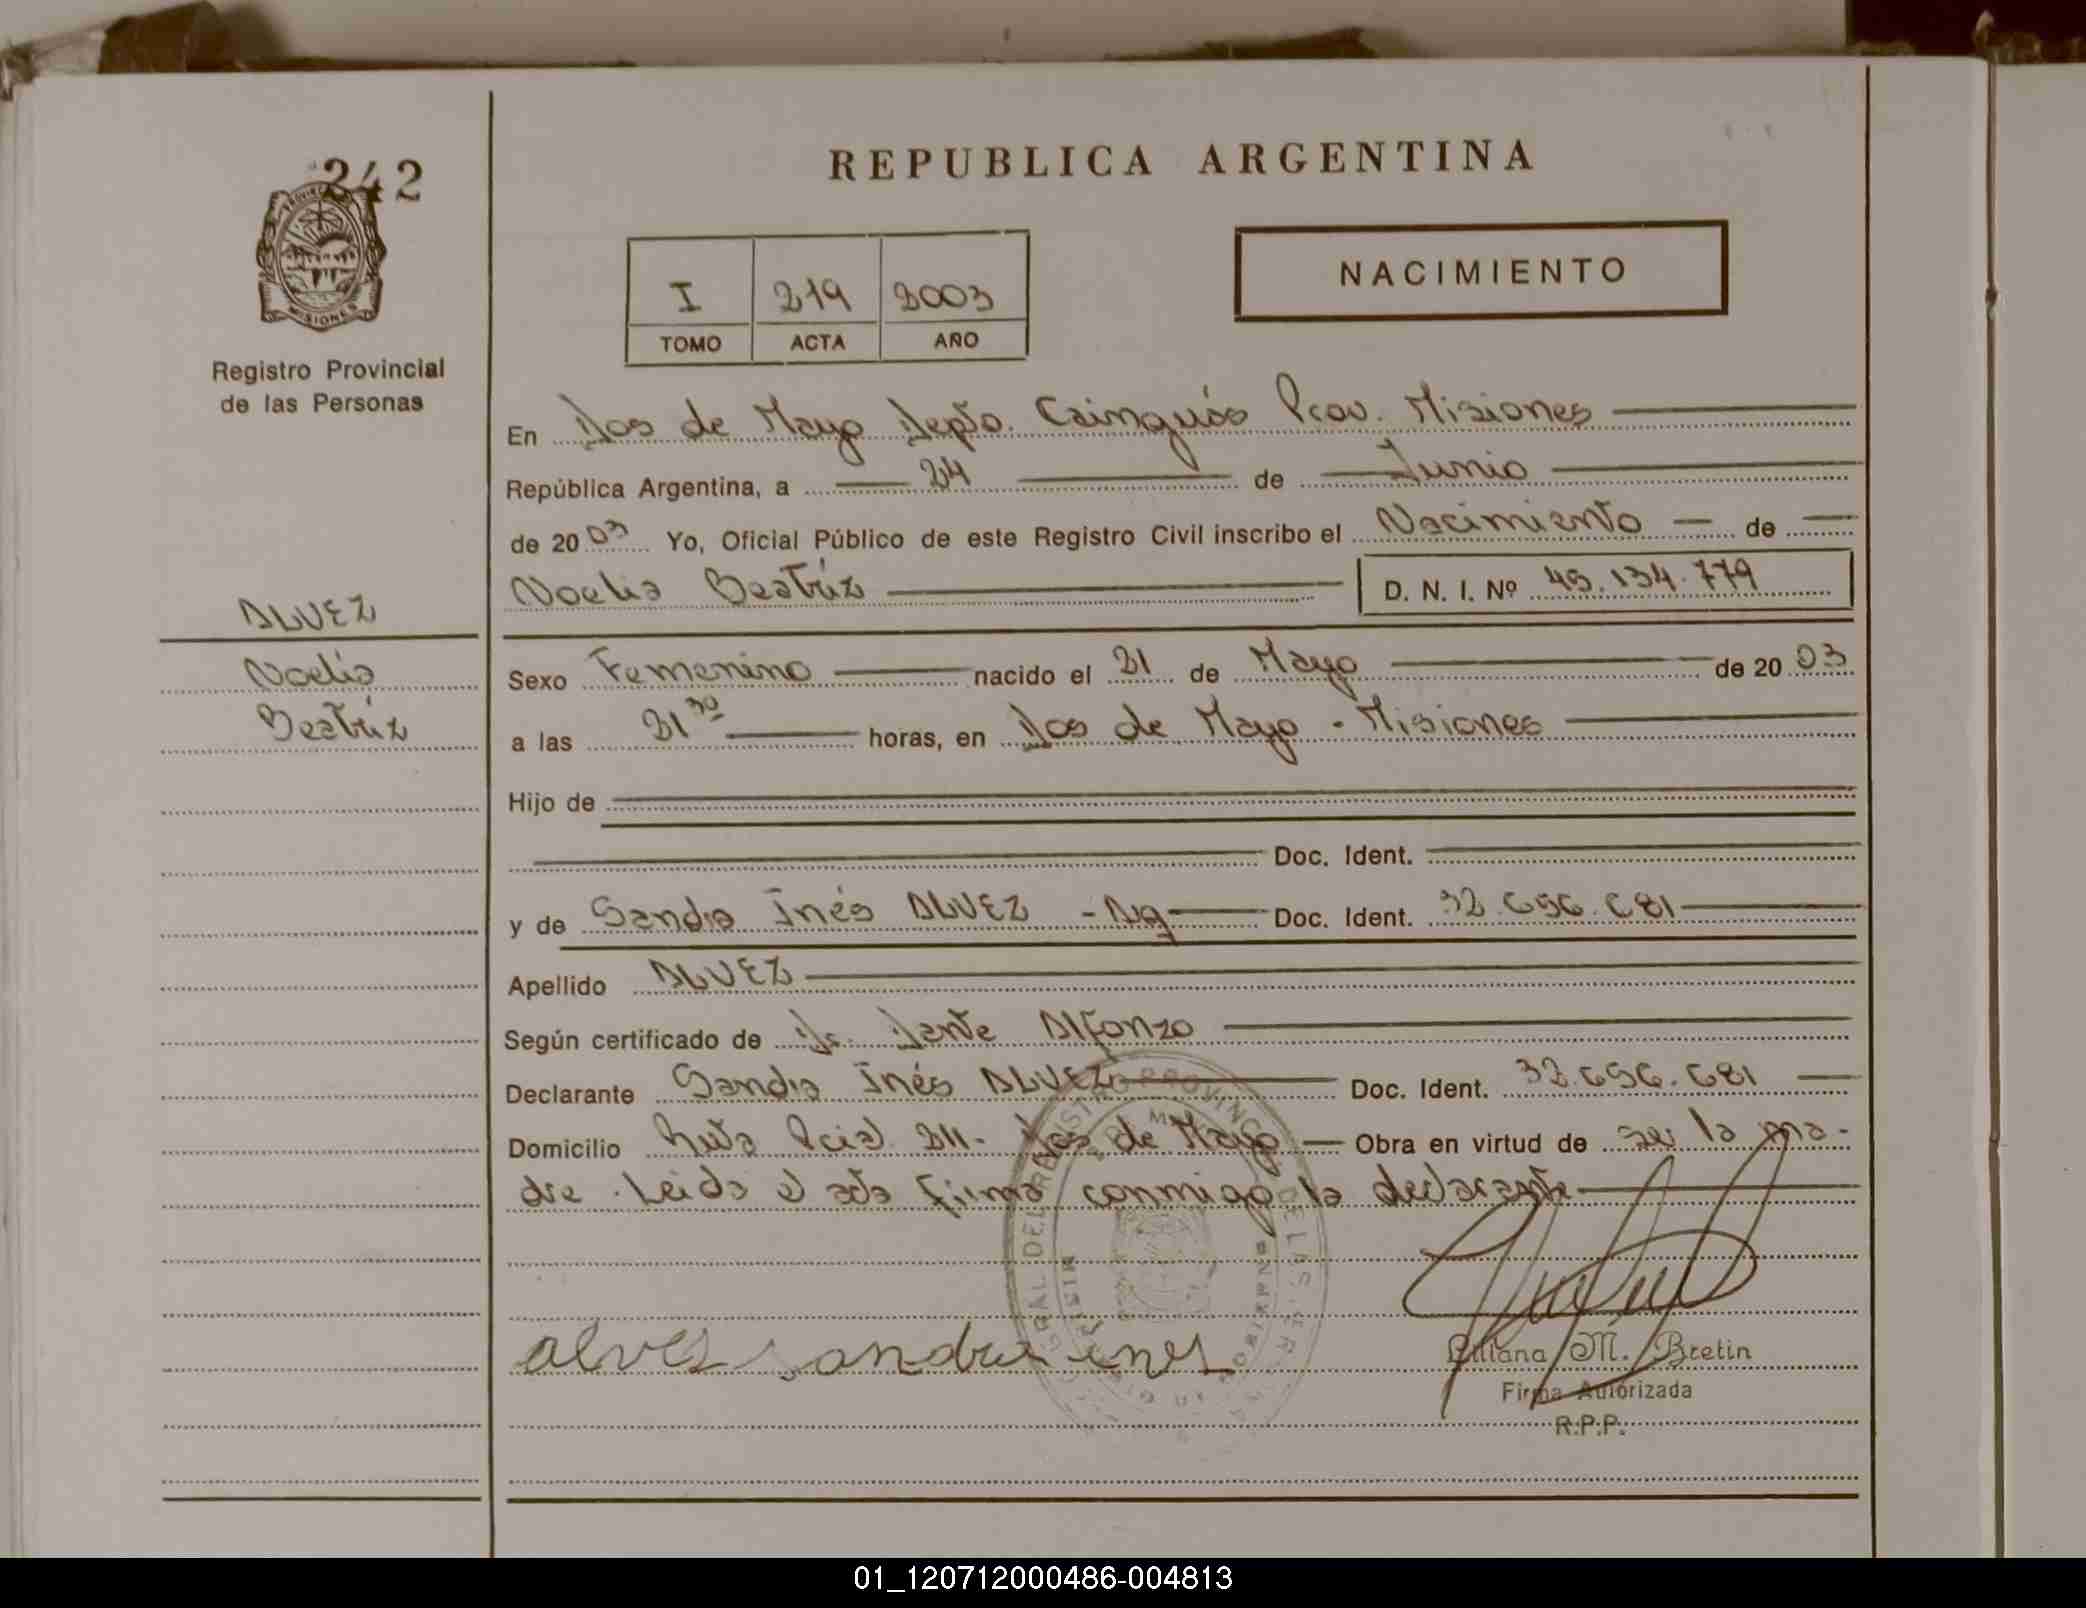 242
REPUBLICA ARGENTINA
PROVINCIA
MISIONES
Registro Provincial
de las Personas
I 219 2003
TOMO ACTA AÑO
NACIMIENTO
En Dos de Mayo Depto. Cainguás Prov. Misiones
República Argentina, a 24 de Junio
de 2003 Yo, Oficial Público de este Registro Civil inscribo el Nacimiento de
Noelia Beatriz D. N. I. Nº 45.134.779
ALVEZ
Noelia
Beatriz
Sexo Femenino nacido el 21 de Mayo de 2003
a las 21 30 horas, en Dos de Mayo - Misiones
Hijo de
Doc. Ident.
y de Sandra Inés ALVEZ - Arg Doc. Ident. 32.656.681
Apellido ALVEZ
Según certificado de Dr. Dante Alfonzo
Declarante Sandra Inés ALVEZ Doc. Ident. 32.656.681
Domicilio Ruta Pcial. 211 - Dos de Mayo Obra en virtud de ser la ma-
dre. Leida el acta firma conmigo la declarante
alves sandra ines
Liliana M. Bretin
Firma Autorizada
R.P.P.
01_120712000486-004813